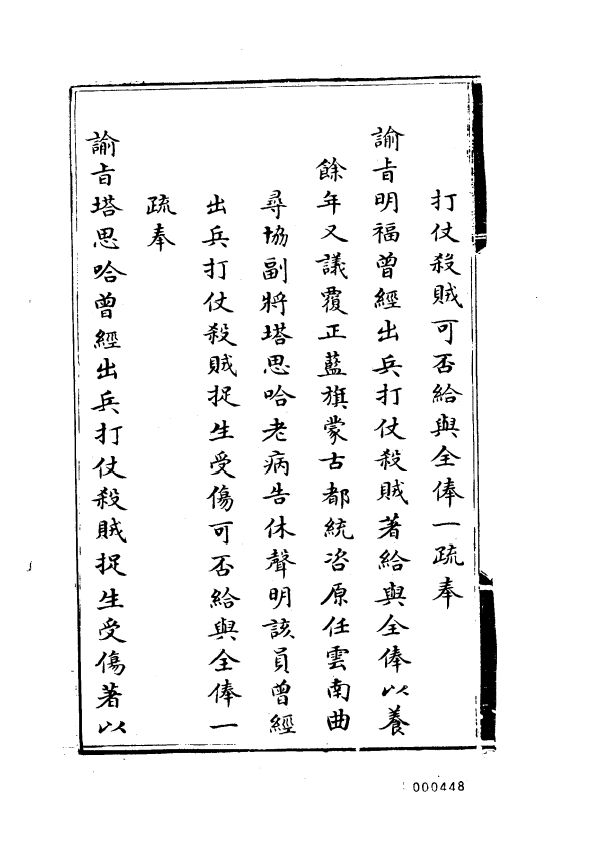 打仗殺賊可否給與全俸一疏奉
諭旨明福曾經出兵打仗殺賊著給與全俸以養
餘年又議覆正藍旗蒙古都統咨原任雲南曲
尋協副將塔思哈老病告休聲明該員曾經
出兵打仗殺賊捉生受傷可否給與全俸一
疏奉
諭旨塔思哈曾經出兵打仗殺賊捉生受傷著以
000448